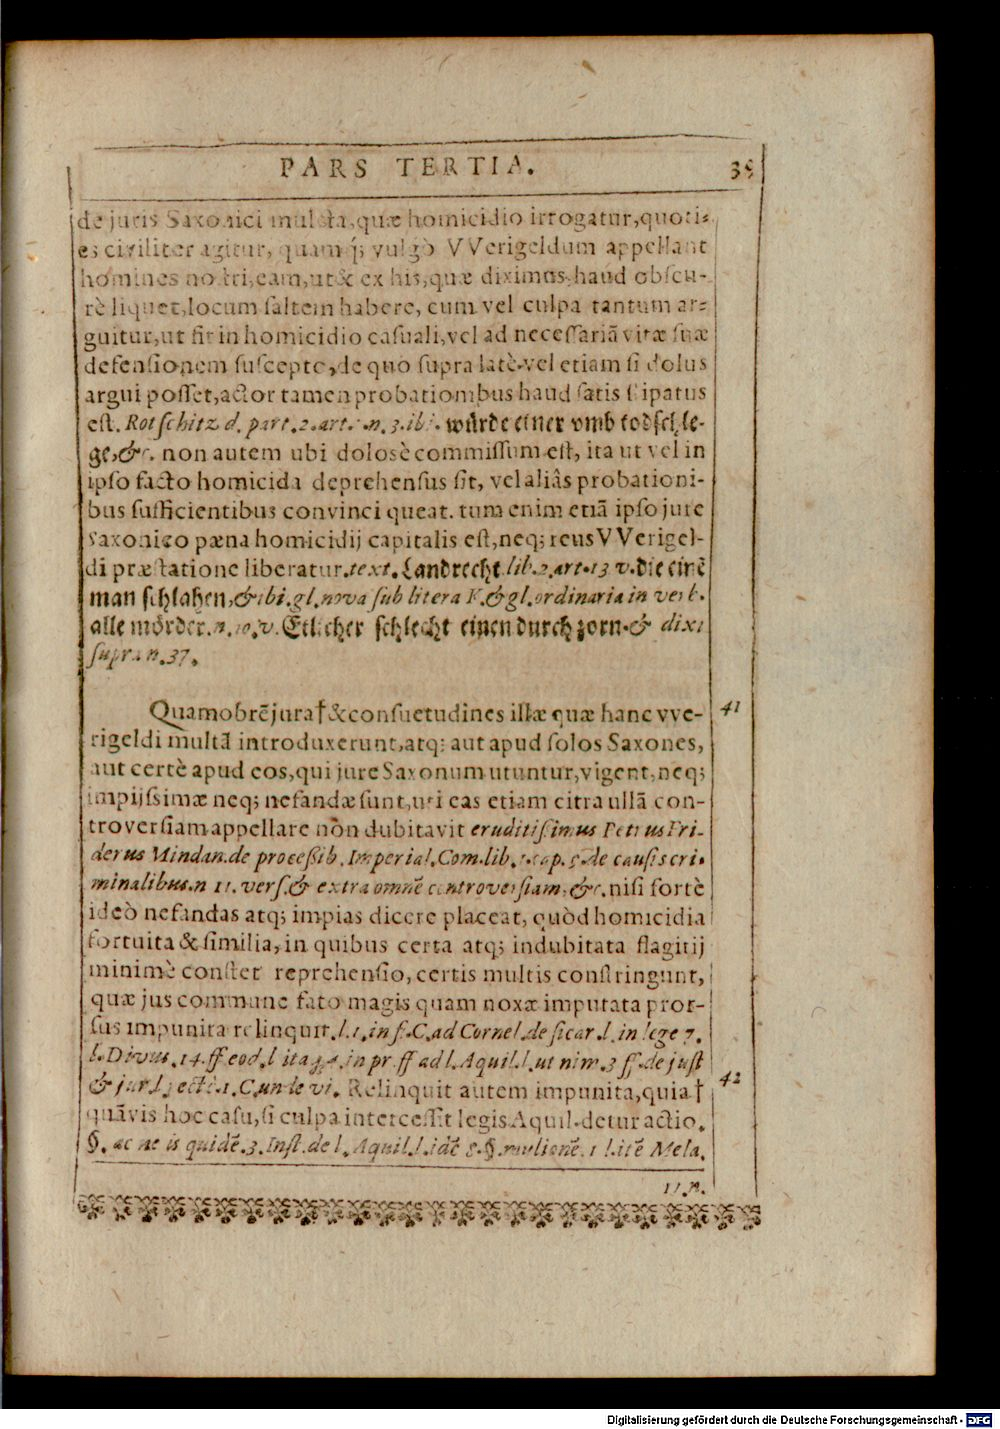 PARS TERTIA. 35
de juris Saxonici mulcta, quæ homicidio irrogatur, quoti-
es civiliter agitur, quam vulgò VVerigeldum appellant
homines nostri, eam, ut & ex his, quæ diximus, haud obscu-
rè liquet, locum saltem habere, cum vel culpa tantum ar-
guitur, ut fit in homicidio casuali, vel ad necessariã vitæ suæ
defensionem suscepto, de quo supra latè. vel etiam si dolus
argui posset, actor tamen probationibus haud satis stipatus
est. Rotschitz d. part. 2. art. n. 3. ibi. würde einer vmb todschle-
ge, &c. non autem ubi dolosè commissum est, ita ut vel in
ipso facto homicida deprehensus sit, vel aliâs probationi-
bus sufficientibus convinci queat. tum enim etiã ipso jure
Saxonico pæna homicidij capitalis est, neq; reus VVerigel-
di præstatione liberatur. text. Landrecht lib. 2. art. 13 v. die einē
man schlahen, & ibi. gl. nova sub litera K. & gl. ordinaria in verb.
alle mörder. n. 10. v. Etlicher schlecht einen durch zorn. & dixi
supra n. 37.
Quamobrē jura† & consuetudines illæ quæ hanc vve- 41
rigeldi multã introduxerunt, atq; aut apud solos Saxones,
aut certè apud eos, qui jure Saxonum utuntur, vigent, neq;
impijssimæ neq; nefandæ sunt, uti eas etiam citra ullã con-
troversiam appellare non dubitavit eruditissimus Petrus Fri-
derus Mindan. de processib. Imperial. Com. lib. 1. cap. 5. de causis cri-
minalibus. n 11. vers. & extra omnē controversiam, &c. nisi fortè
ideò nefandas atq; impias dicere placeat, quòd homicidia
fortuita & similia, in quibus certa atq; indubitata flagitij
minimè constet reprehensio, certis multis constringunt,
quæ jus commune fato magis quam noxæ imputata pror-
sus impunita relinquit. l. 1. in f. C. ad Cornel. de sicar. l. in lege 7.
l. Divus. 14. ff eod. l ita in pr. ff ad l. Aquil. l. ut nim. 3 ff. de just
& jur. C. unde vi. Relinquit autem impunita, quia† 42
quãvis hoc casu, si culpa intercessit legis Aquil. detur actio.
§. ac ne is quidē. 3. Inst. de l. Aquil. l. idē 8. §. mulionē. 1 l. itē Mela.
11. п.
Digitalisierung gefördert durch die Deutsche Forschungsgemeinschaft - DFG